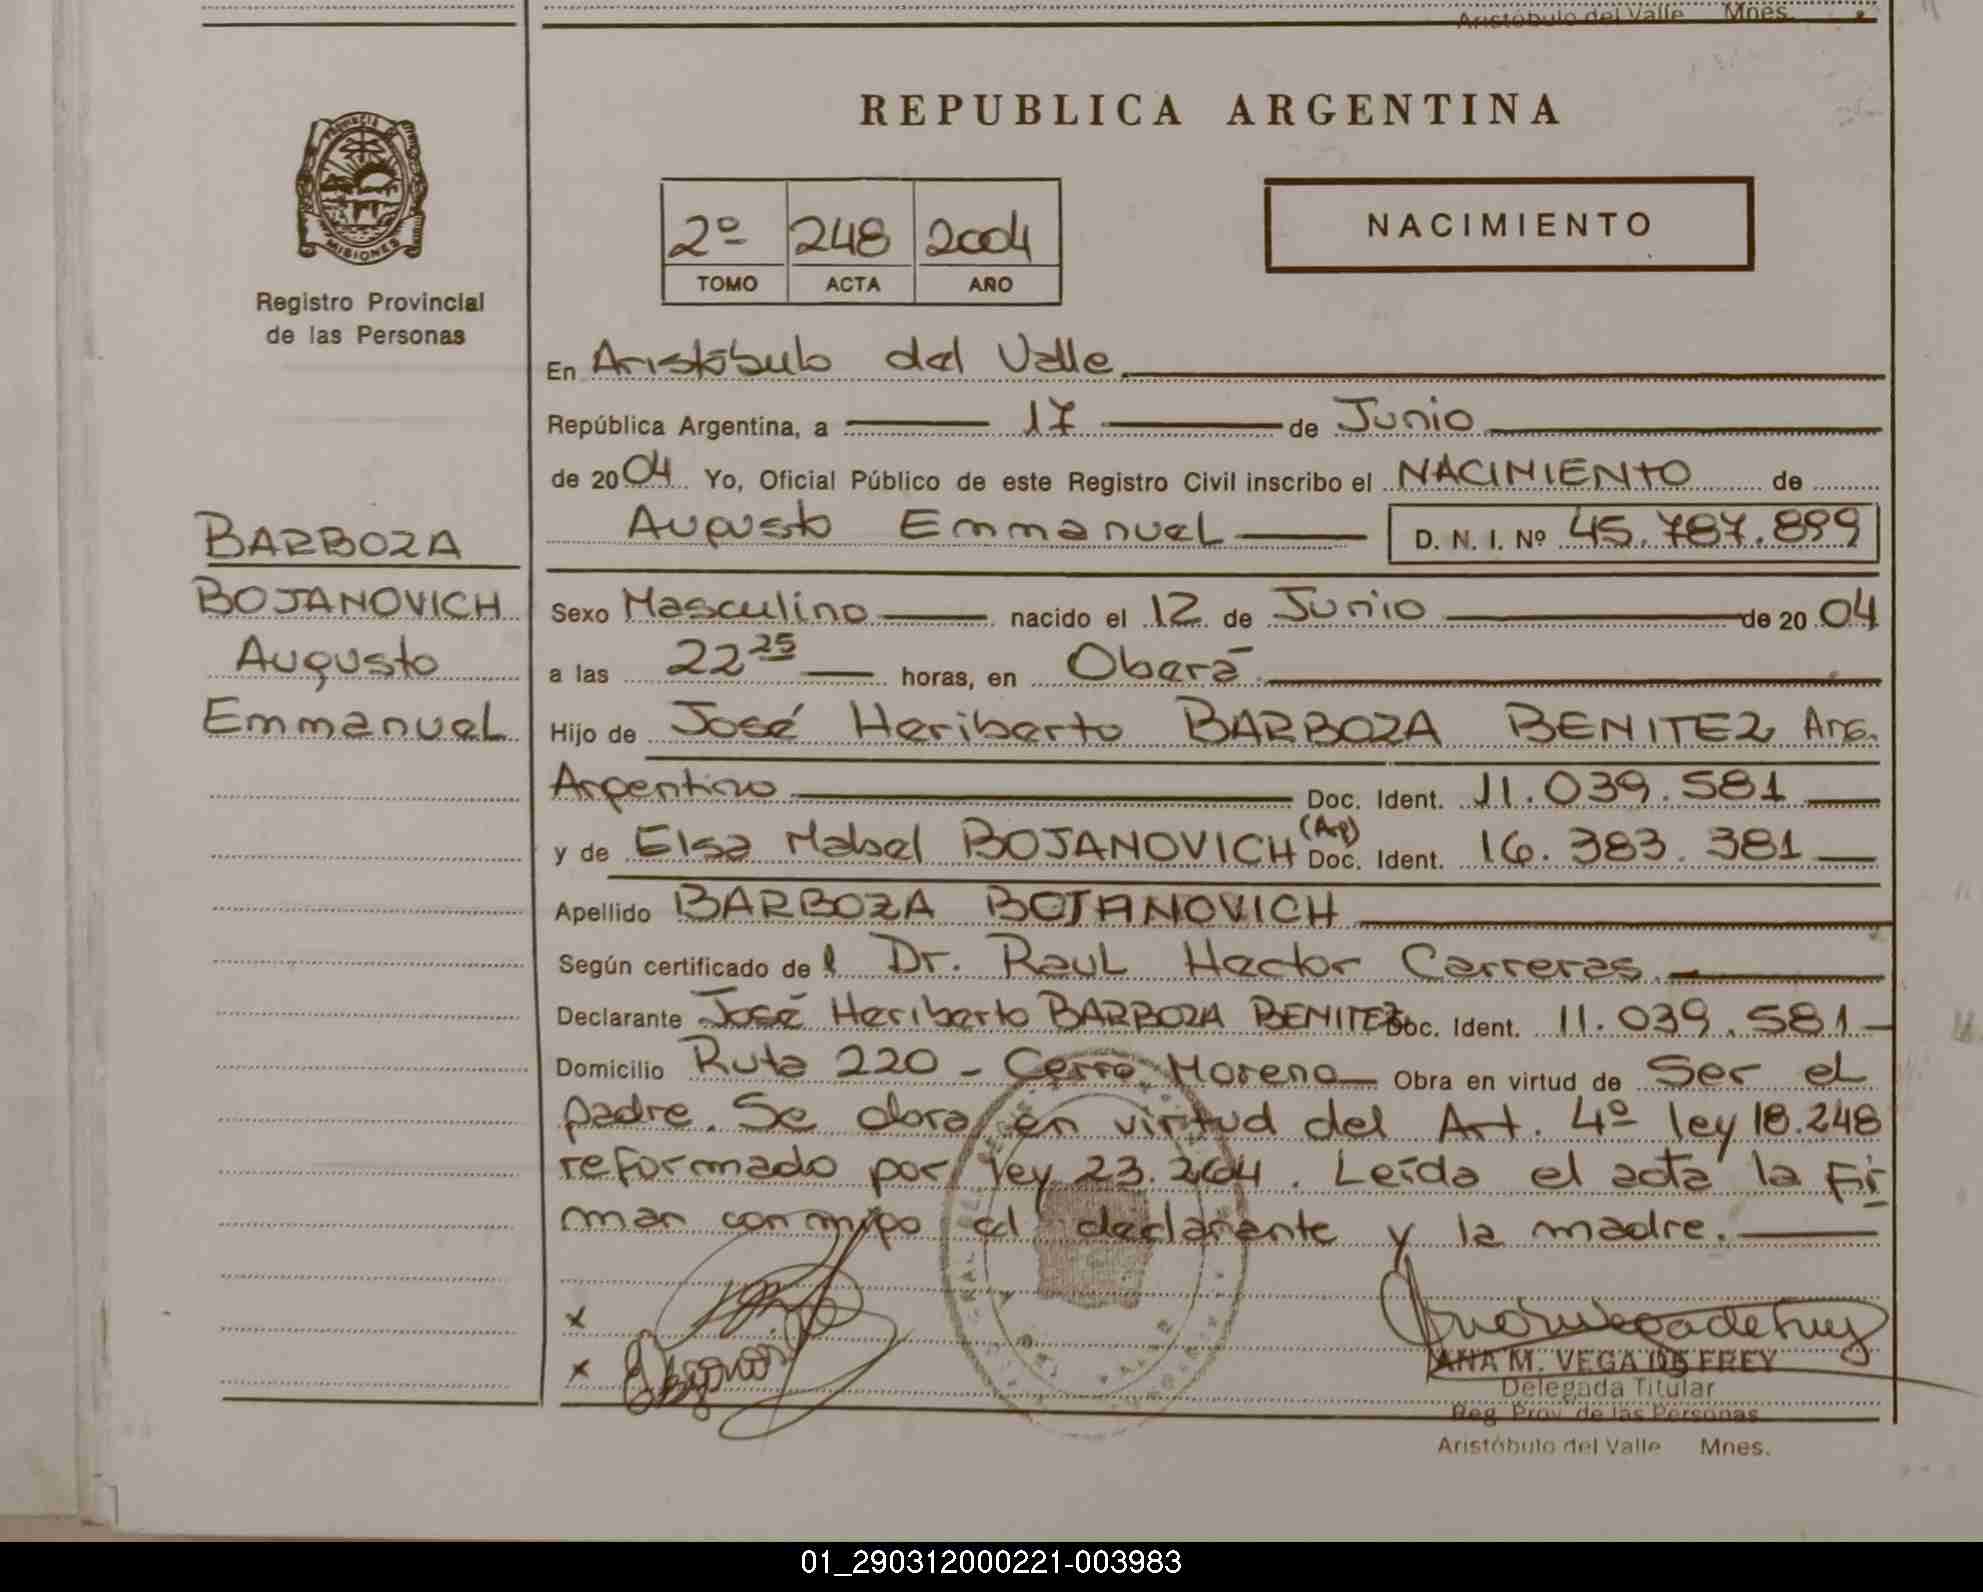 Aristóbulo del Valle Mnes.
PROVINCIA
MISIONES
Registro Provincial
de las Personas
REPUBLICA ARGENTINA
2º 248 2004
TOMO ACTA AÑO
NACIMIENTO
BARBOZA
BOJANOVICH
Augusto
Emmanuel
En Aristóbulo del Valle
República Argentina, a 17 de Junio
de 2004 Yo, Oficial Público de este Registro Civil inscribo el NACIMIENTO de
Augusto Emmanuel D. N. I. Nº 45.787.899
Sexo Masculino nacido el 12 de Junio de 2004
a las 22 25 horas, en Oberá
Hijo de José Heriberto BARBOZA BENITEZ Arg.
Argentino Doc. Ident. 11.039.581
y de Elsa Mabel BOJANOVICH (Arg) Doc. Ident. 16.383.381
Apellido BARBOZA BOJANOVICH
Según certificado del Dr. Raul Hector Carreras
Declarante José Heriberto BARBOZA BENITEZ Doc. Ident. 11.039.581
Domicilio Ruta 220 - Cerro Moreno Obra en virtud de Ser el
padre. Se obra en virtud del Art. 4º ley 18.248
reformado por ley 23.264. Leída el acta la fir
man conmigo el declarante y la madre.
x
x
ANA M. VEGA DE FREY
Delegada Titular
Reg. Prov. de las Personas
Aristóbulo del Valle Mnes.
01_290312000221-003983